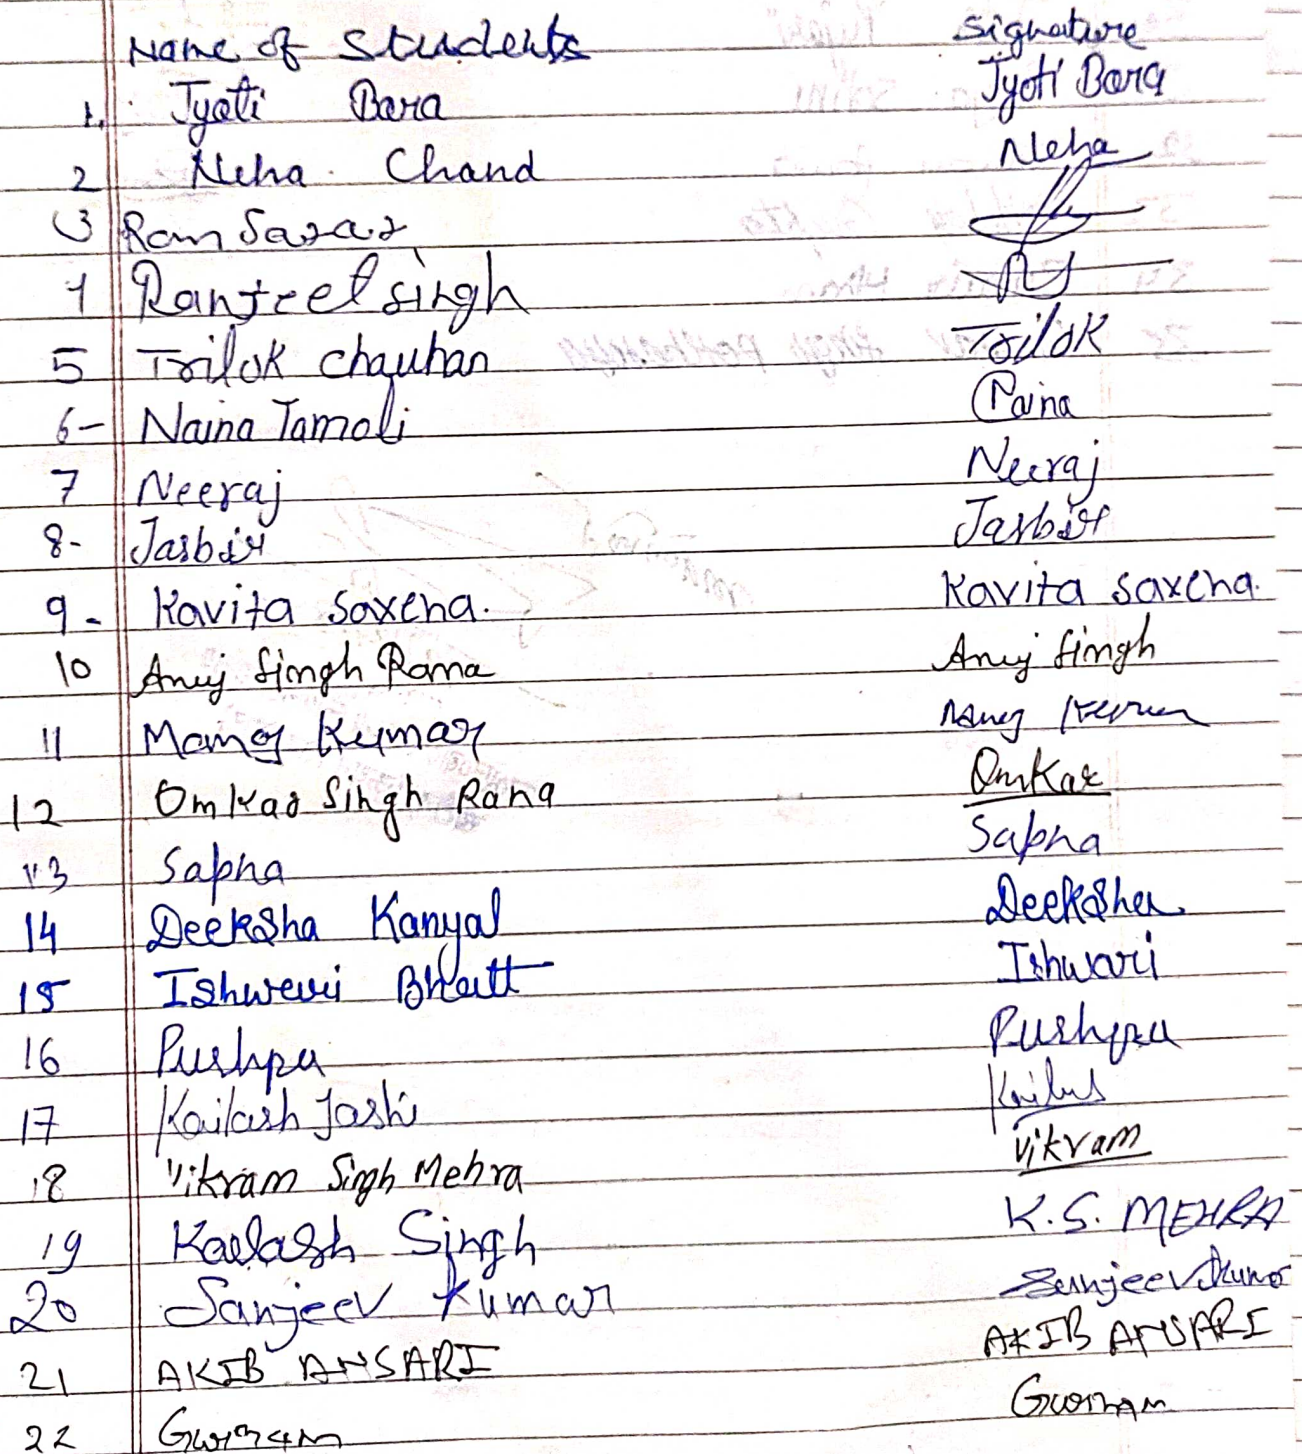 Name of Students Signature
1. Jyoti Bara Jyoti Bara
2 Neha Chand Neha
3 Ram Sagar
4 Ranjeet singh
5 Trilok chauhan Trilok
6- Naina Tamoli Naina
7 Neeraj Neeraj
8- Jasbir Jasbir
9- Kavita Saxena. Kavita Saxena.
10 Anuj Singh Rana Anuj Singh
11 Manoj Kumar Manoj Kumar
12 Omkar Singh Rana Omkar
13 Sapna Sapna
14 Deeksha Kanyal Deeksha
15 Ishwari Bhatt Ishwari
16 Pushpa Pushpa
17 Kailash Joshi Kailash
18 Vikram Singh Mehra Vikram
19 Kailash Singh K.S. MEHRA
20 Sanjeev Kumar Sanjeev Kumar
21 AKIB ANSARI AKIB ANSARI
22 Gurnam Gurnam